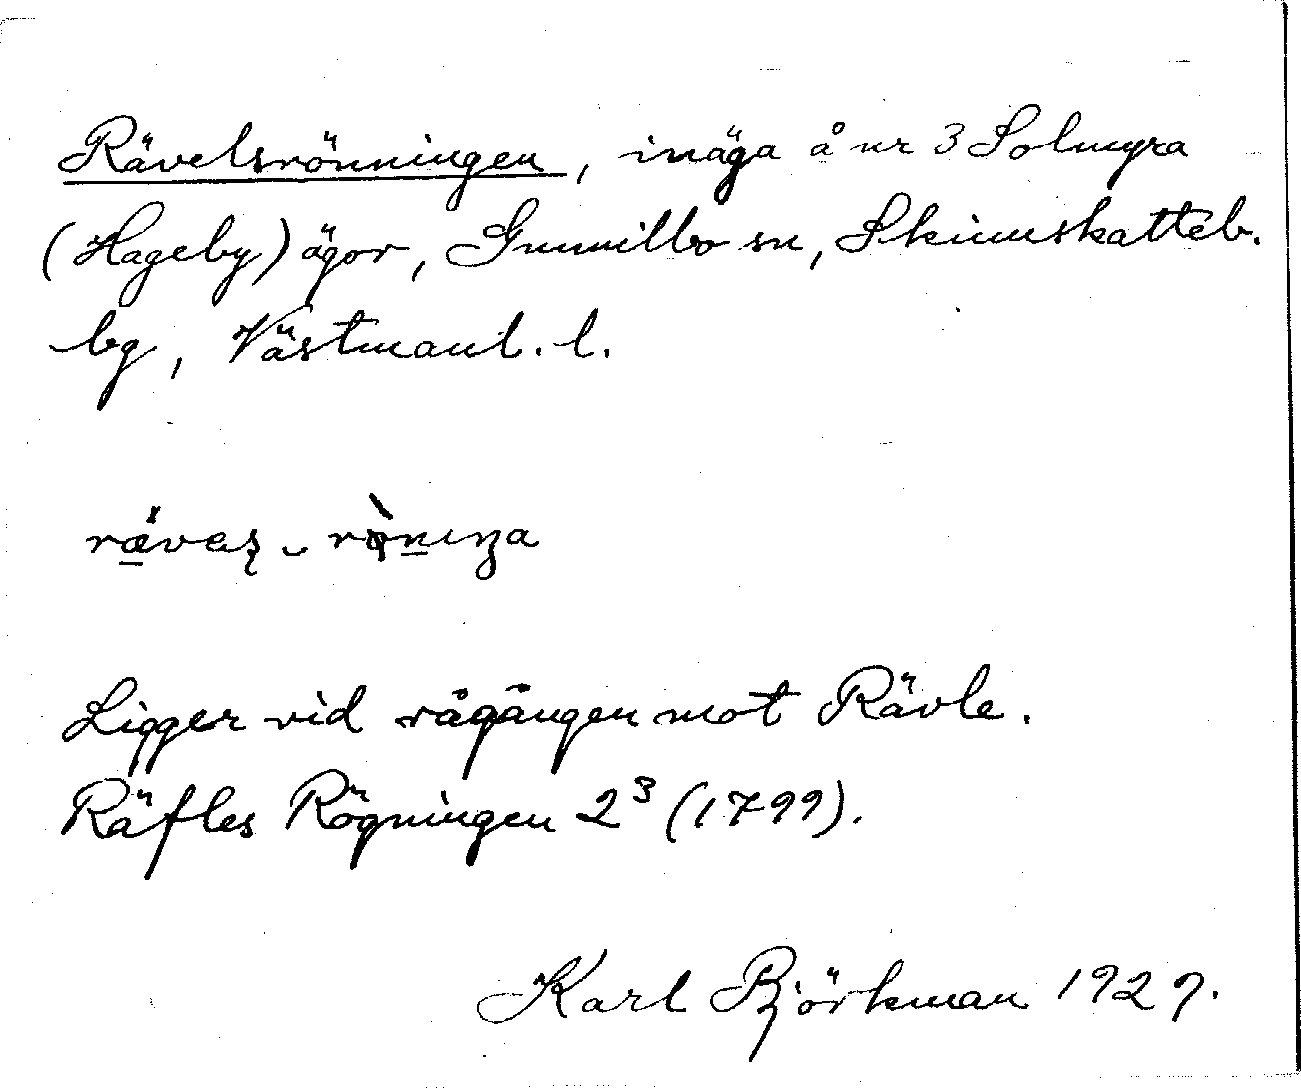 Rävelsrönningen, inäga å nr 3 Solmyra
(Hageby) ägor, Gunnilbo sn, Skinnskatteb.
bg, Västmanl. l.
Ligger vid rågången mot Rävle.
Räfles Rögningen 2³ (1799).
Karl Björkman 1929.